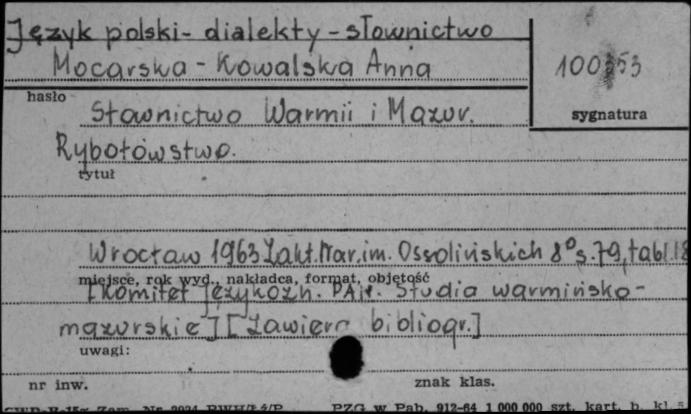 Język polski - dialekty - słownictwo
Mocarska-Kowalska Anna
hasło
sygnatura
Słownictwo Warmii i Mazur.
Rybołówstwo.
tytuł
Wrocław 1963 Zakł. Nar. im. Ossolińskich 8° s. 79, tabl. 18
miejsce, rok wyd., nakładca, format, objętość
[Komitet Językozn. PAN. Studia warmińsko-
mazurskie] [Zawiera bibliogr.]
uwagi:
nr inw.
znak klas.
PZG w Pab. 912-64 1 000 000 szt. kart. b. kl.